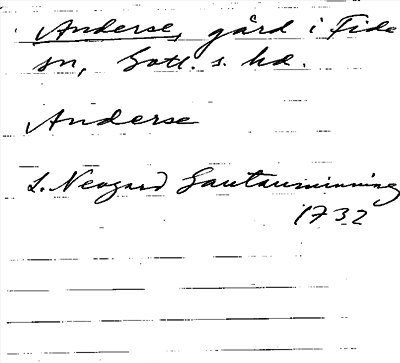 Anderse, gård i Fide
sn, Gotl. s. hd.
Anderse
L. Neogard Gautauminning
1732